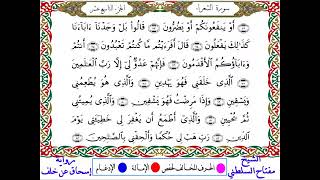 سورة الشعراء
الجزء التاسع عشر
أَوْ يَنفَعُونَكُمُۥٓ أَوْ يَضُرُّونَ ۝ قَالُوا۟ بَلْ وَجَدْنَآ ءَابَآءَنَا
كَذَٰلِكَ يَفْعَلُونَ ۝ قَالَ أَفَرَءَيْتُم مَّا كُنتُمْ تَعْبُدُونَ ۝ أَنتُمْ
وَءَابَآؤُكُمُ ٱلْأَقْدَمُونَ ۝ فَإِنَّهُمْ عَدُوٌّ لِّىٓ إِلَّا رَبَّ ٱلْعَٰلَمِينَ
۝ ٱلَّذِى خَلَقَنِى فَهُوَ يَهْدِينِ ۝ وَٱلَّذِى هُوَ يُطْعِمُنِى
وَيَسْقِينِ ۝ وَإِذَا مَرِضْتُ فَهُوَ يَشْفِينِ ۝ وَٱلَّذِى يُمِيتُنِى
ثُمَّ يُحْيِينِ ۝ وَٱلَّذِىٓ أَطْمَعُ أَن يَغْفِرَ لِى خَطِيٓـَٔتِى يَوْمَ
ٱلدِّينِ ۝ رَبِّ هَبْ لِى حُكْمًا وَأَلْحِقْنِى بِٱلصَّٰلِحِينَ ۝
الشيخ
مفتاح السلطني
الحرف المخالف لحفص
الإمالة
الإدغام
رواية
إسحاق عن خلف